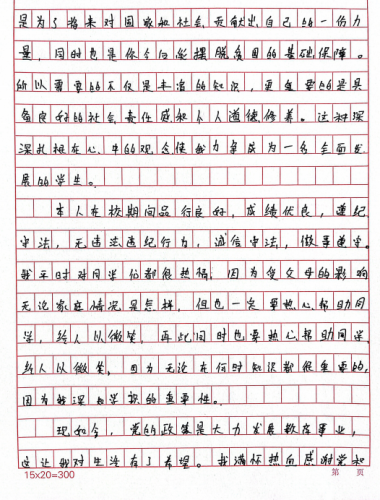 是为了将来对国家和社会贡献出自己的一份力
量,同时也是你今后能摆脱贫困的基础保障。
所以需要的不仅是丰富的知识,更重要的是具
备良好的社会责任感和个人道德修养。这种深
深扎根在心中的观念使我力争成为一名全面发
展的学生。
本人在校期间品行良好,成绩优良,遵纪
守法,无违法违纪行为,诚信守法,做事
我平时对同学们都很热情,因为受父母的影响
无论家庭情况是怎样,但也一定要热心帮助同
学,给人以微笑,再此同时也要热心帮助同学
给人以微笑,因为无论在何时知识都很重要的,
因为我深知学识的重要性。
现如今,党的政策是大力发展教育事业,
这让我对生活有了希望。我满怀热向感谢党和
15×20=300
第 页